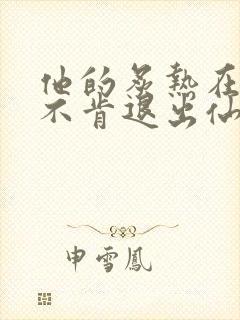 他的炙热在
不肯退出仙
申雪鳳